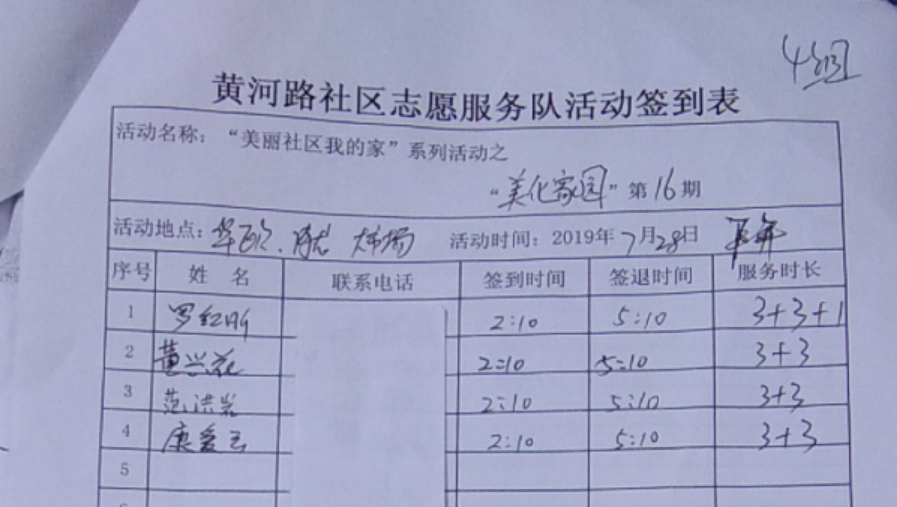 4组
黄河路社区志愿服务队活动签到表
活动名称：“美丽社区我的家”系列活动之
“美化家园”第16期
活动地点： 活动时间：2019年7月28日
序号 姓名 联系电话 签到时间 签退时间 服务时长
1 2:10 5:10 3+3+1
2 黄兴花 2:10 5:10 3+3
3 范洪岩 2:10 5:10 3+3
4 康爱云 2:10 5:10 3+3
5